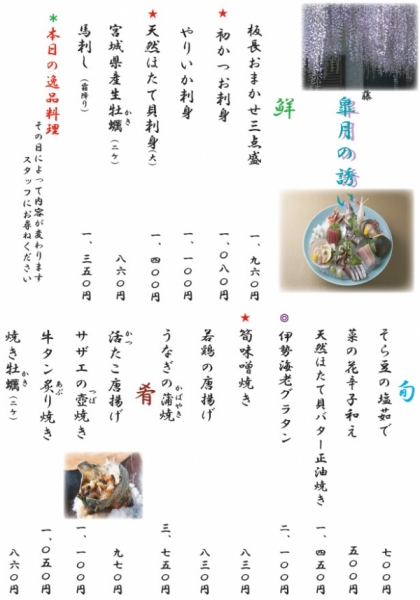 藤
皐月の誘い
鮮
板長おまかせ三点盛 一、九六〇円
★初かつお刺身 一、〇八〇円
やりいか刺身 一、一〇〇円
★天然ほたて貝刺身(大) 一、四〇〇円
宮城県産生牡蠣(二ケ) 八六〇円
かき
馬刺し(霜降り) 一、三五〇円
＊本日の逸品料理
その日によって内容が変わります
スタッフにお尋ねください
旬
そら豆の塩茹で 七〇〇円
菜の花辛子和え 五〇〇円
天然ほたて貝バター正油焼き 一、四五〇円
◎伊勢海老グラタン 二、一〇〇円
★筍味噌焼き 八三〇円
若鶏の唐揚げ 八三〇円
うなぎの蒲焼 三、七五〇円
かばやき
肴
活たこ唐揚げ 九七〇円
かつ
サザエの壺焼き 一、一〇〇円
つぼ
牛タン炙り焼き 一、〇五〇円
あぶ
焼き牡蠣(二ケ) 八六〇円
かき